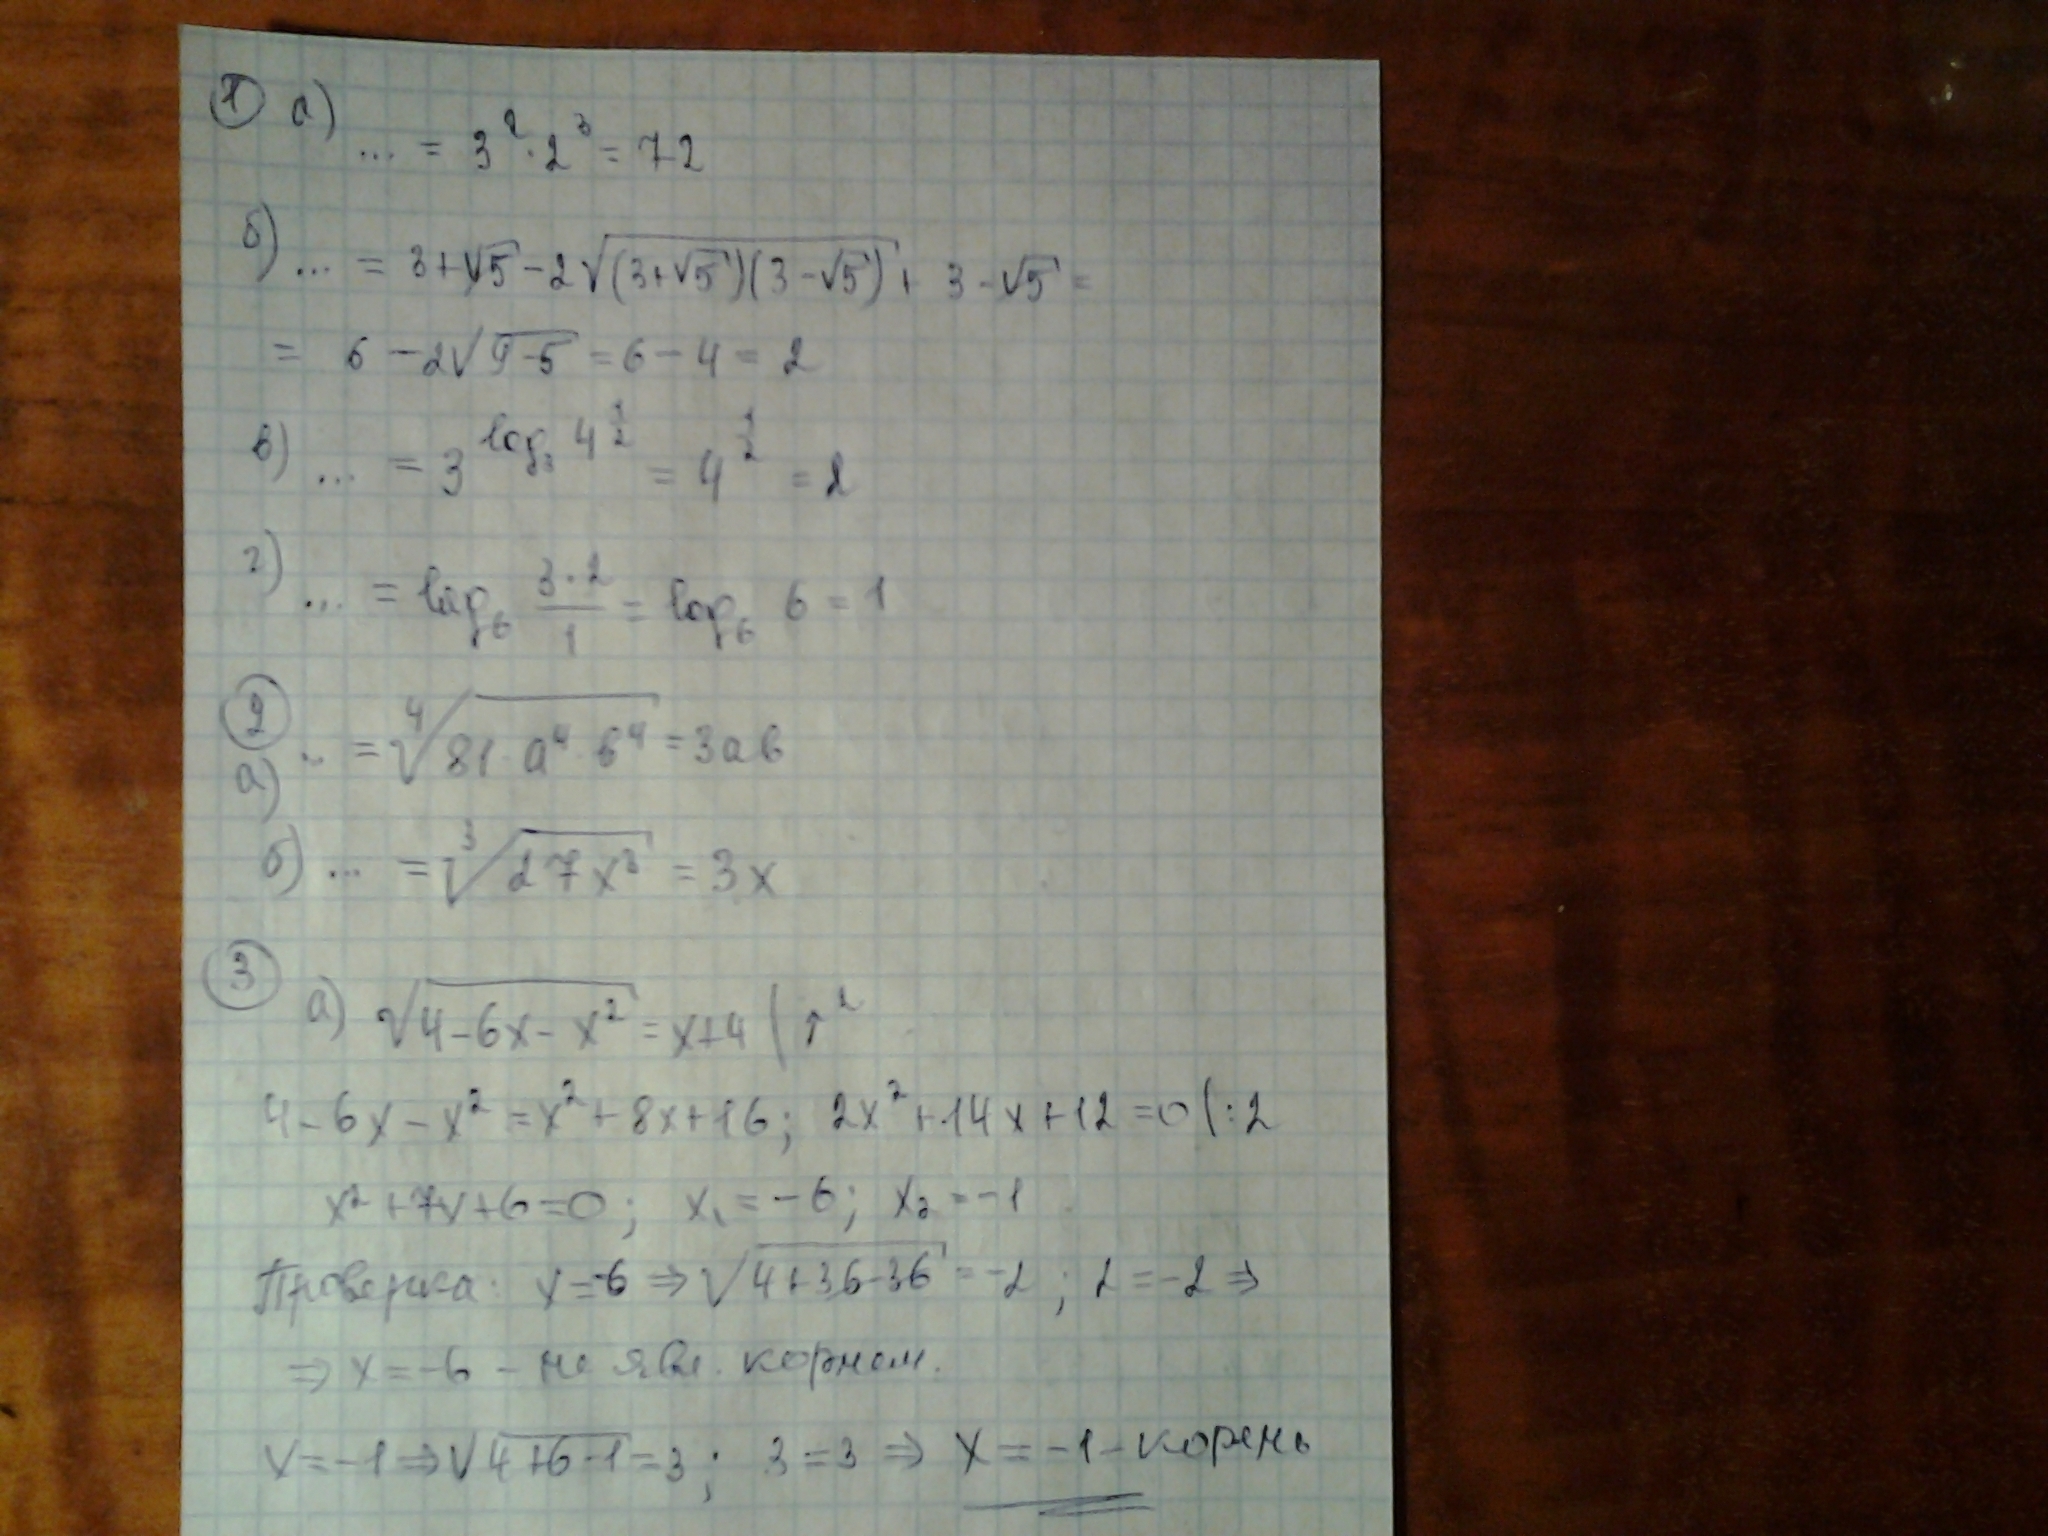 ① а) ... = 3² · 2³ = 72
б) ... = 3+√5 - 2√((3+√5)(3-√5)) + 3-√5 =
= 6 - 2√(9-5) = 6 - 4 = 2
в) ... = 3^(log₃ 4^(1/2)) = 4^(1/2) = 2
г) ... = log₆ (3·2)/1 = log₆ 6 = 1
② а) ... = ⁴√(81·a⁴·b⁴) = 3ab
б) ... = ³√(27x³) = 3x
③ а) √(4-6x-x²) = x+4 | ↑²
4-6x-x² = x²+8x+16; 2x²+14x+12=0 |:2
x²+7x+6=0; x₁=-6; x₂=-1
Проверка: x=-6 ⇒ √(4+36-36) = -2; 2=-2 ⇒
⇒ x=-6 - не явл. корнем.
x=-1 ⇒ √(4+6-1) = 3; 3=3 ⇒ x=-1 - корень